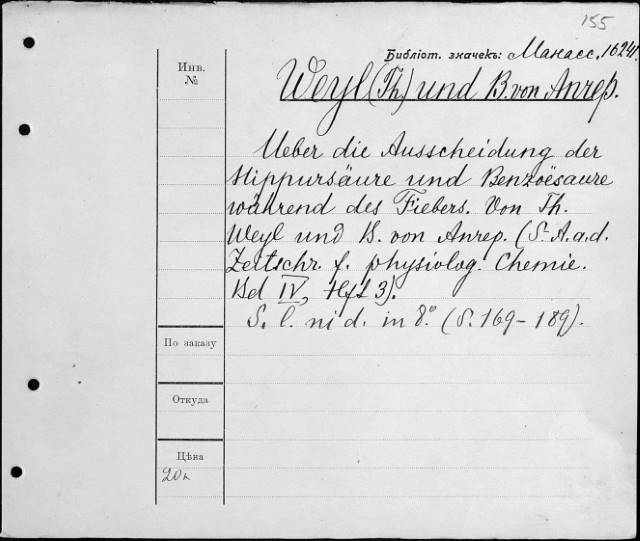 155
Библіот. значекъ: Манасс. 1624.
Инв.
№
Weyl (Th) und B. von Anrep.
Ueber die Ausscheidung der
Hippursäure und Benzoësaure
während des Fiebers. Von Th.
Weyl und B. von Anrep. (S. A. a. d.
Zeitschr. f. physiolog. Chemie.
Bd IV, Hft 3).
S. l. ni d. in 8.° (S. 169-189).
По заказу
Откуда
Цѣна
20к